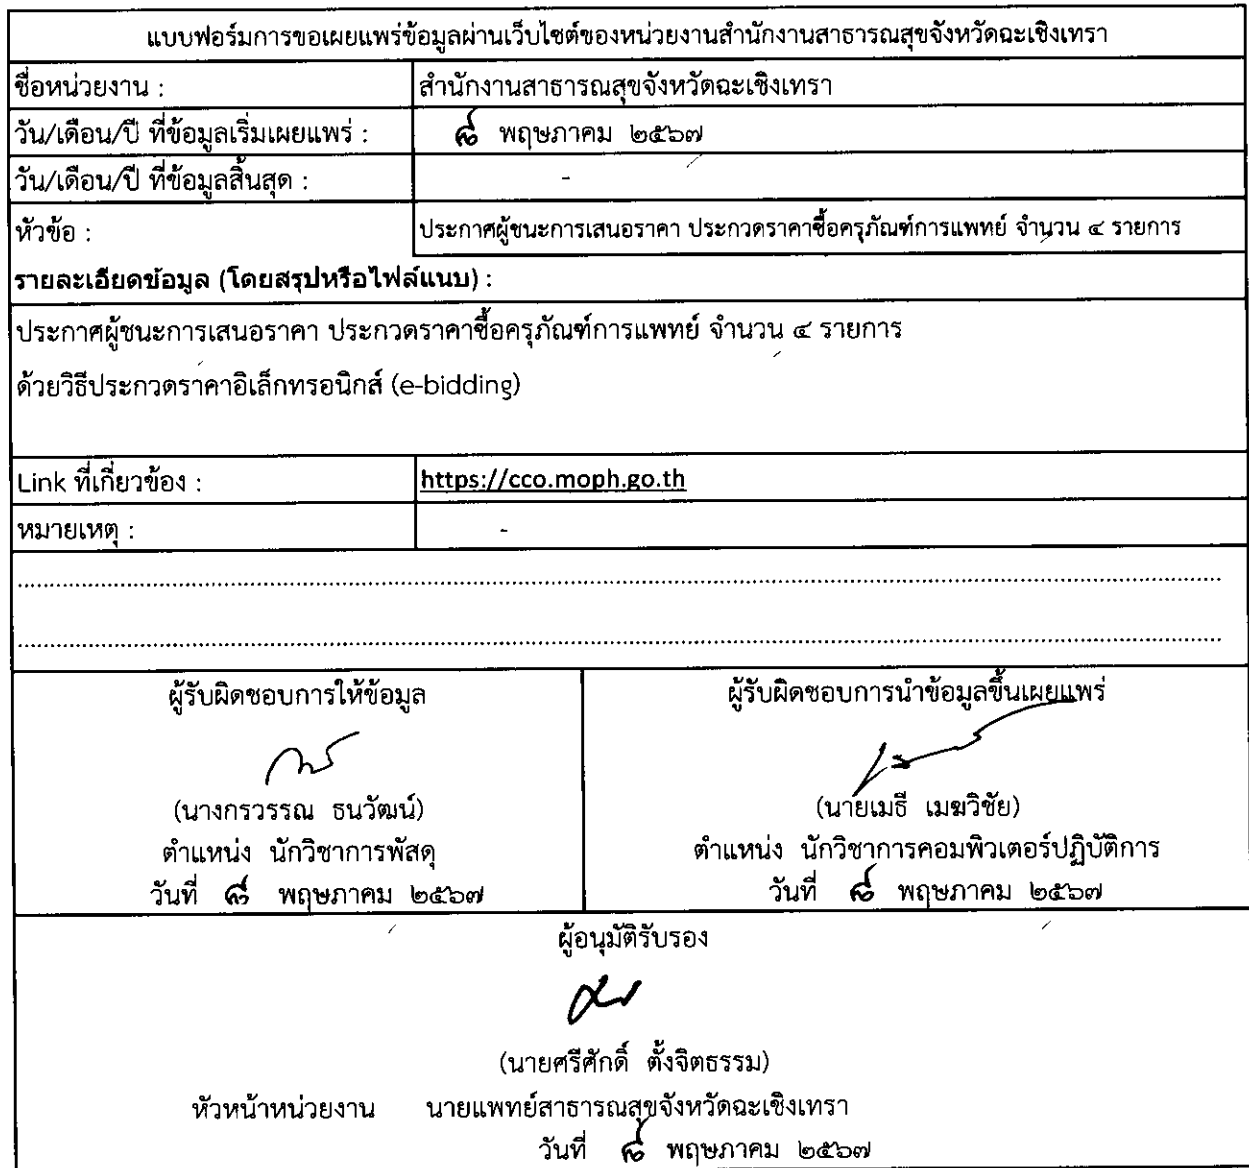 แบบฟอร์มการขอเผยแพร่ข้อมูลผ่านเว็บไซต์ของหน่วยงานสำนักงานสาธารณสุขจังหวัดฉะเชิงเทรา
ชื่อหน่วยงาน : สำนักงานสาธารณสุขจังหวัดฉะเชิงเทรา
วัน/เดือน/ปี ที่ข้อมูลเริ่มเผยแพร่ : ๘ พฤษภาคม ๒๕๖๗
วัน/เดือน/ปี ที่ข้อมูลสิ้นสุด : -
หัวข้อ : ประกาศผู้ชนะการเสนอราคา ประกวดราคาซื้อครุภัณฑ์การแพทย์ จำนวน ๔ รายการ
รายละเอียดข้อมูล (โดยสรุปหรือไฟล์แนบ) :
ประกาศผู้ชนะการเสนอราคา ประกวดราคาซื้อครุภัณฑ์การแพทย์ จำนวน ๔ รายการ
ด้วยวิธีประกวดราคาอิเล็กทรอนิกส์ (e-bidding)
Link ที่เกี่ยวข้อง : https://cco.moph.go.th
หมายเหตุ : -
ผู้รับผิดชอบการให้ข้อมูล ผู้รับผิดชอบการนำข้อมูลขึ้นเผยแพร่
(นางกรวรรณ ธนวัฒน์) (นายเมธี เมฆวิชัย)
ตำแหน่ง นักวิชาการพัสดุ ตำแหน่ง นักวิชาการคอมพิวเตอร์ปฏิบัติการ
วันที่ ๘ พฤษภาคม ๒๕๖๗ วันที่ ๘ พฤษภาคม ๒๕๖๗
ผู้อนุมัติรับรอง
(นายศรีศักดิ์ ตั้งจิตธรรม)
หัวหน้าหน่วยงาน นายแพทย์สาธารณสุขจังหวัดฉะเชิงเทรา
วันที่ ๘ พฤษภาคม ๒๕๖๗